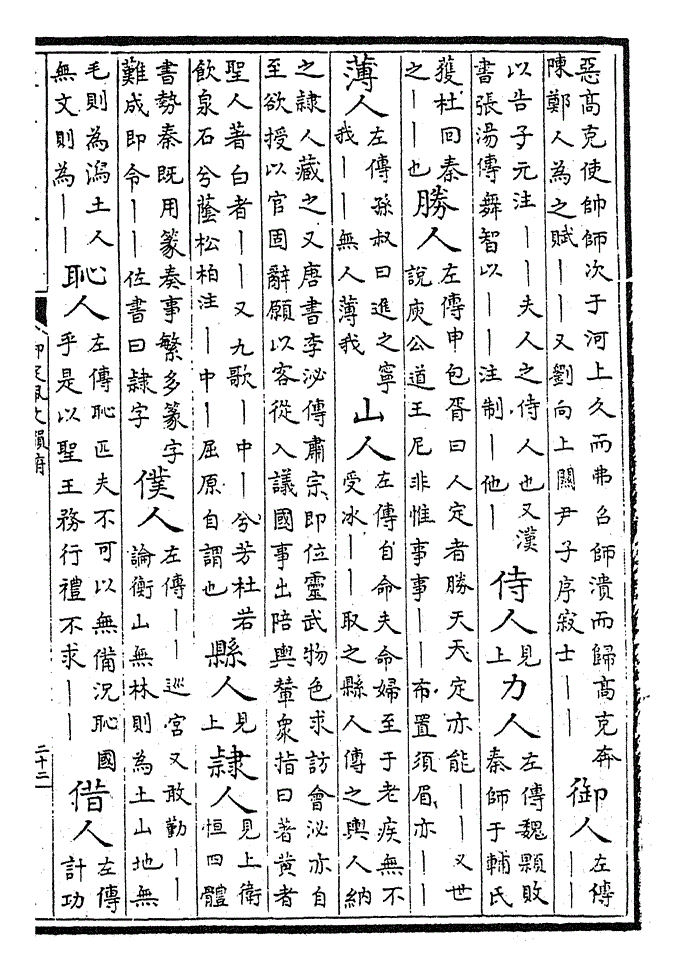 惡高克使帥師次于河上久而弗召師潰而歸高克奔
陳鄭人為之賦——又劉向上關尹子序寂士——
御人
左傳
——
以告子元注——夫人之侍人也又漢
書張湯傳舞智以——注制—他—
侍人
見
上
力人
左傳魏顆敗
秦師于輔氏
獲杜回秦
之——也
勝人
左傳申包胥曰人定者勝天天定亦能——又世
說庾公道王尼非惟事事——布置須眉亦——
薄人
左傳孫叔曰進之寧
我——無人薄我
山人
左傳自命夫命婦至于老疾無不
受冰——取之縣人傳之輿人納
之隸人藏之又唐書李泌傳肅宗即位靈武物色求訪會泌亦自
至欲授以官固辭願以客從入議國事出陪輿輦衆指曰著黃者
聖人著白者——又九歌—中—兮芳杜若
飲泉石兮蔭松柏注—中—屈原自謂也
縣人
見
上
隸人
見上衛
恒四體
書勢秦既用篆奏事繁多篆字
難成即令——佐書曰隸字
僕人
左傳——巡宮又敢勤——
論衡山無林則為土山地無
毛則為瀉土人
無文則為——
恥人
左傳恥匹夫不可以無備況恥國
乎是以聖王務行禮不求——
借人
左傳
計功
二十二